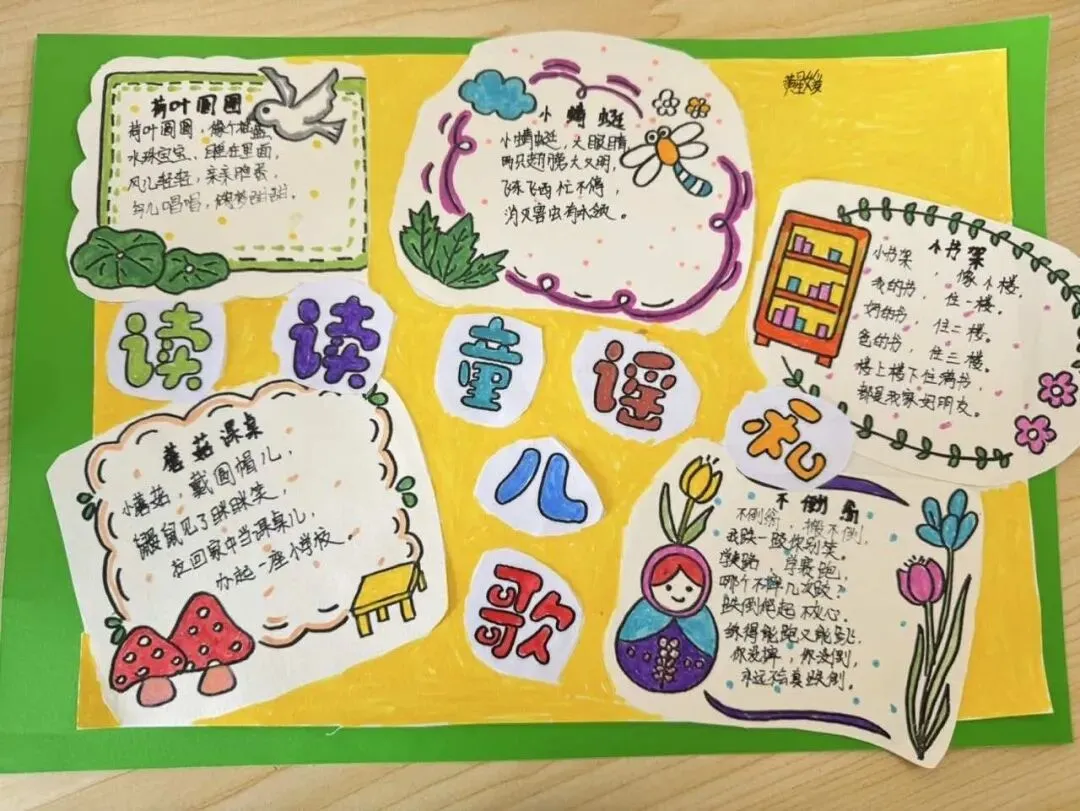 荷叶圆圆
荷叶圆圆，像个摇篮，
水珠宝宝，睡在里面，
风儿轻轻，亲亲脸蛋，
鸟儿唱唱，甜甜。
小蜻蜓
小蜻蜓，大眼睛
两只翅膀大又明，
飞东飞西忙不停，
消灭害虫有本领。
小书架
小书架，像小楼，
我的书，住一楼。
妈的书，住二楼。
爸的书，住三楼。
楼上楼下住满书，
都是我家好朋友。
读读童谣和
儿
歌
蘑菇课桌
小蘑菇，戴圆帽儿，
鼹鼠见了眯眯笑，
拉回家中当课桌儿，
办起一座小学校。
不倒翁
不倒翁，搬不倒，
我跌一跤你别笑。
学走路，学赛跑，
哪个不摔几次跤？
跌倒爬起不放心，
练得能跑又能跳。
你没摔，你没倒，
永远不会真跌倒。